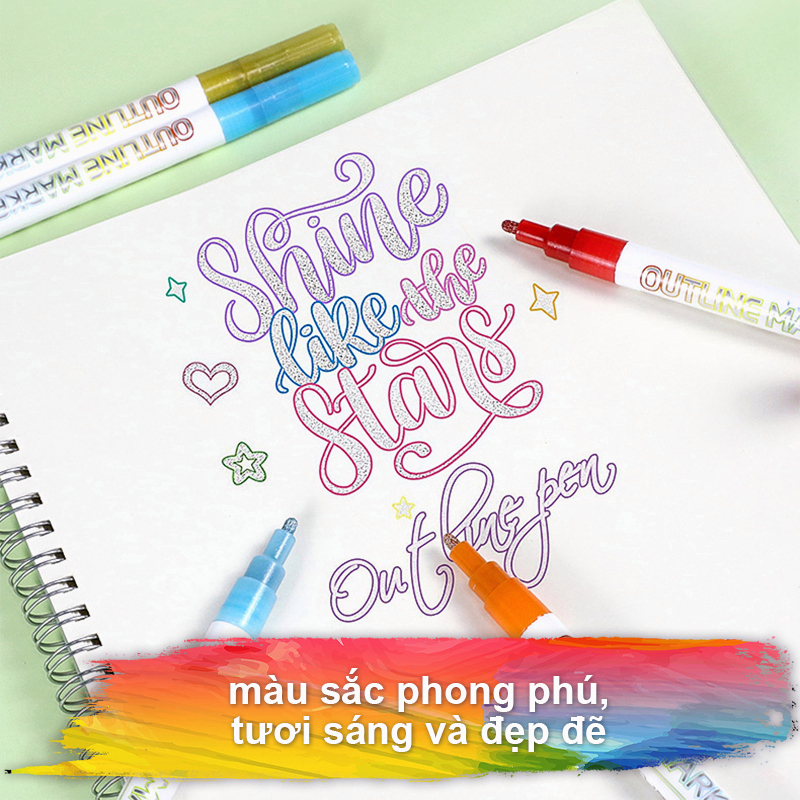 OUTLINE MARKE
OUTLINE MARKE
Shine
like the
Stars
OUTLINE MA
Outline pen
màu sắc phong phú,
tươi sáng và đẹp đẽ